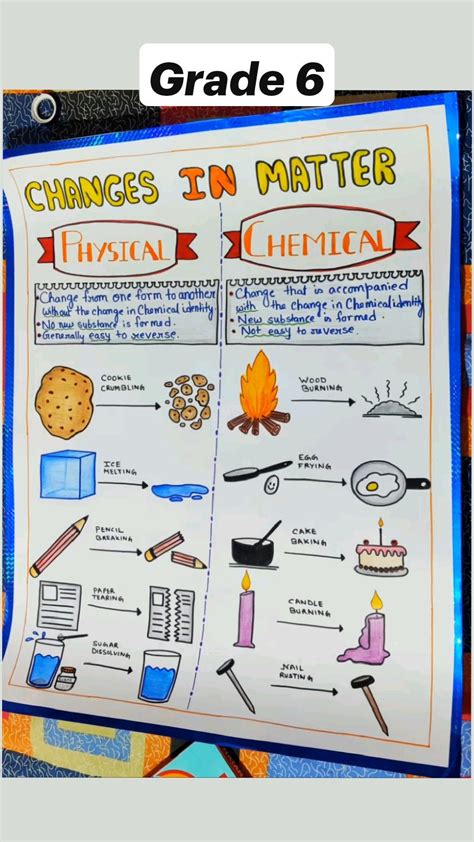 Grade 6
CHANGES IN MATTER
PHYSICAL
• Change from one form to another
without the change in Chemical identity
• No new substance is formed.
• Generally easy to reverse.
COOKIE
CRUMBLING
ICE
MELTING
PENCIL
BREAKING
PAPER
TEARING
SUGAR
DISSOLVING
CHEMICAL
• Change that is accompanied
with the change in Chemical identity
• New substance is formed.
• Not easy to reverse.
WOOD
BURNING
EGG
FRYING
CAKE
BAKING
CANDLE
BURNING
NAIL
RUSTING